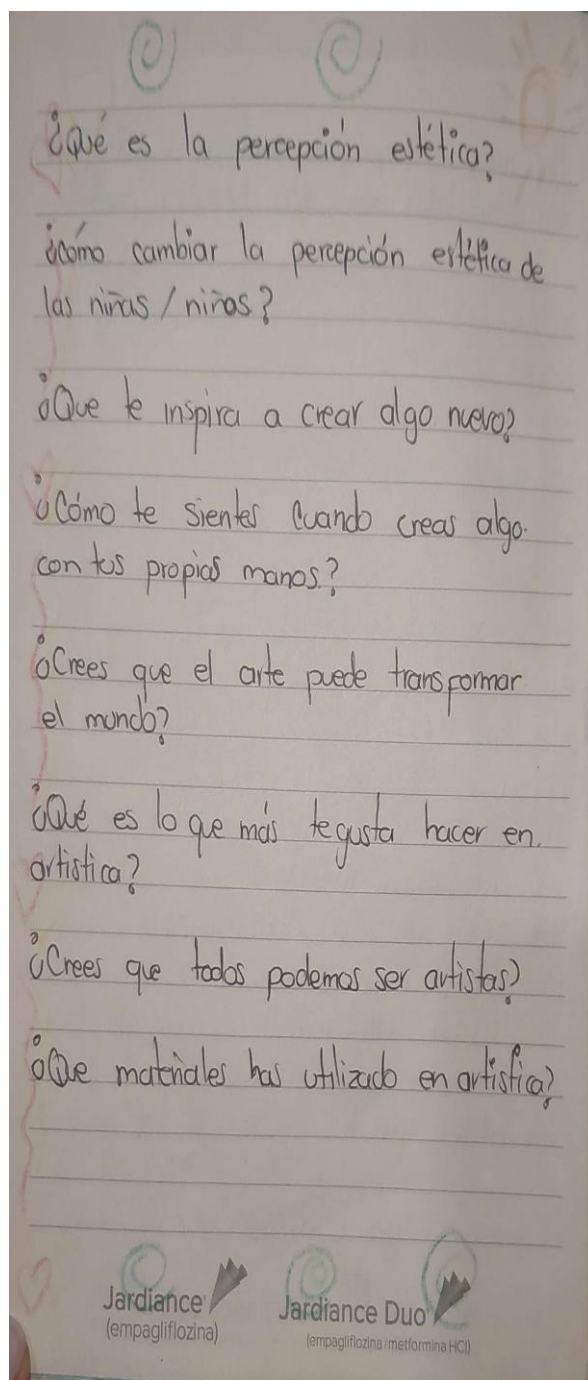 ¿Qué es la percepción estética?
¿cómo cambiar la percepción estética de
las niñas / niños?
¿Que te inspira a crear algo nuevo?
¿Cómo te sientes cuando creas algo.
con tus propias manos?
¿Crees que el arte puede transformar
el mundo?
¿Qué es lo que más te gusta hacer en.
artistica?
¿Crees que todos podemos ser artistas?
¿Que materiales has utilizado en artistica?
Jardiance
(empagliflozina)
Jardiance Duo
(empagliflozina/metformina HCl)